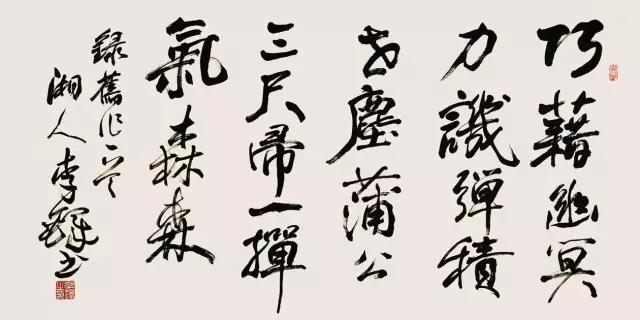 巧藉幽冥
力譏彈積
世塵蒲公
三尺帚一撣
氣森森
録舊作一首
湘人李鐸书